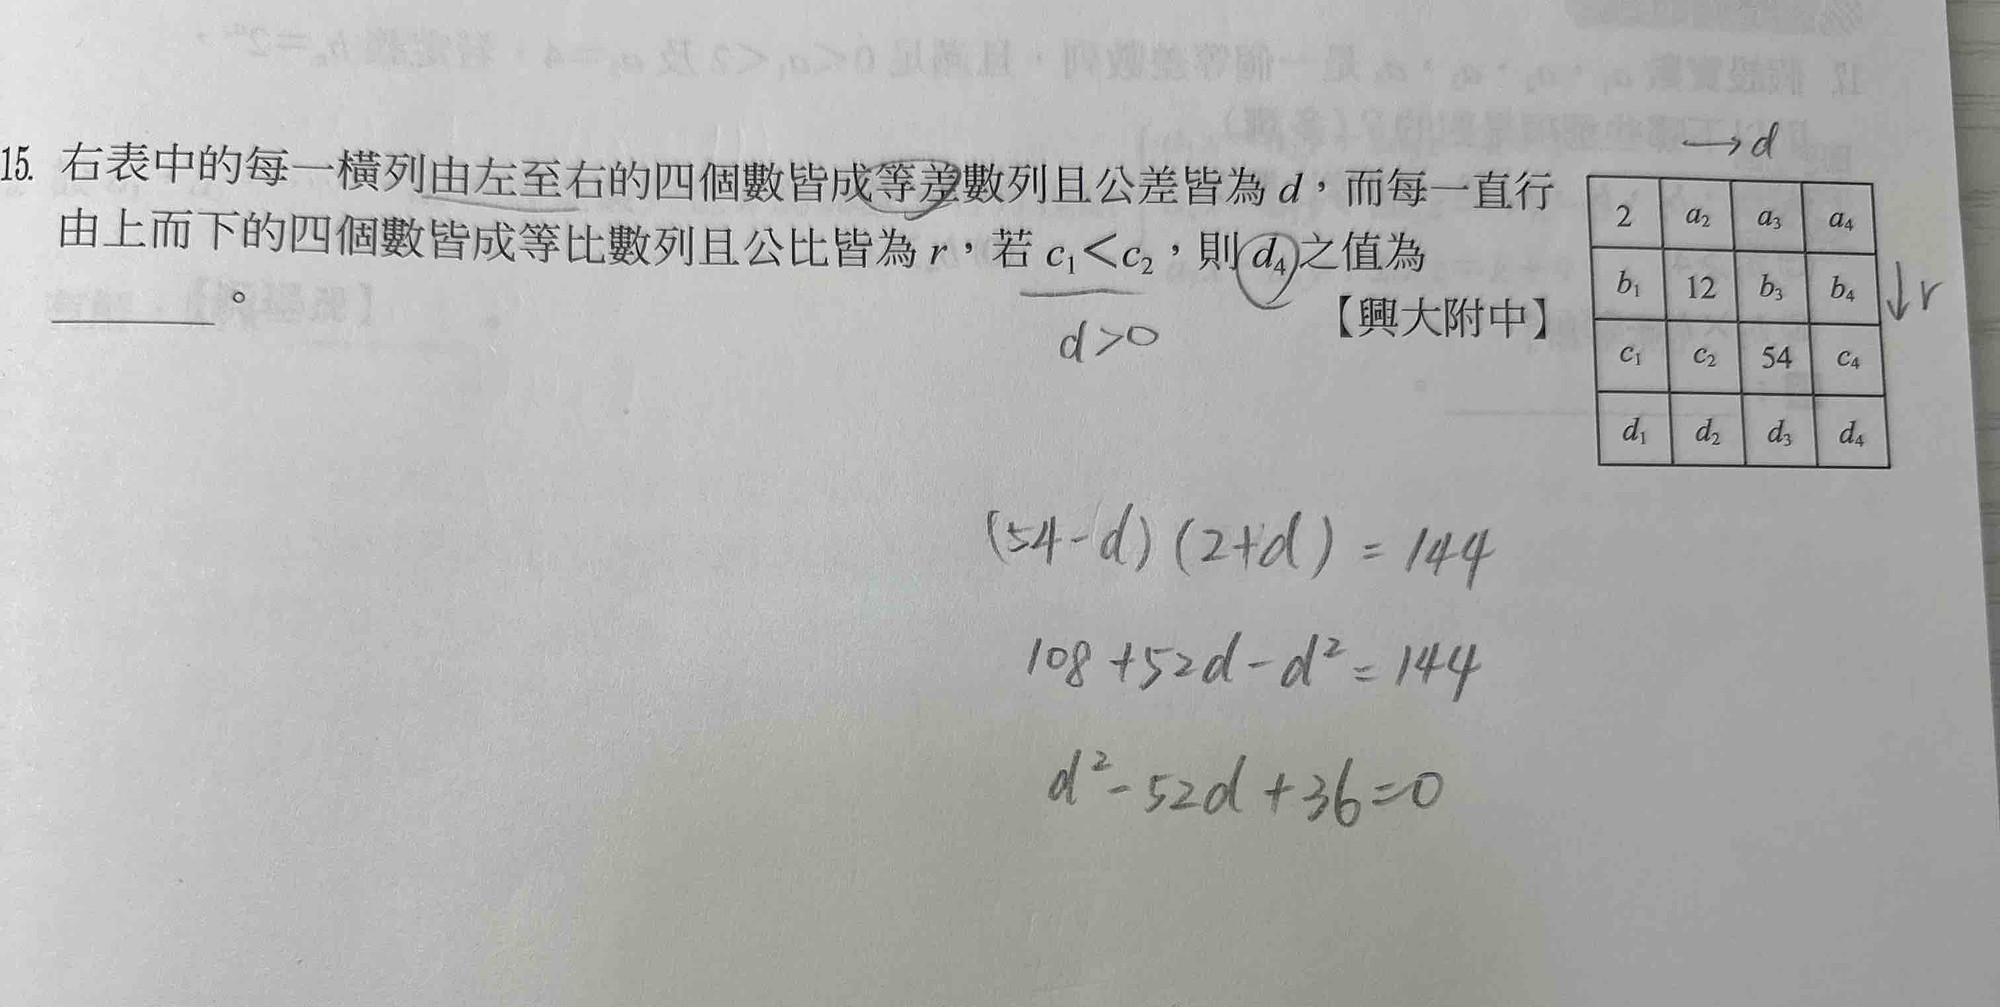 15. 右表中的每一橫列由左至右的四個數皆成等差數列且公差皆為 d，而每一直行
由上而下的四個數皆成等比數列且公比皆為 r，若 c₁<c₂，則 d₄ 之值為
______。
【興大附中】
d>0
→d
2 a₂ a₃ a₄
b₁ 12 b₃ b₄
↓r
c₁ c₂ 54 c₄
d₁ d₂ d₃ d₄
(54-d)(2+d)=144
108+52d-d²=144
d²-52d+36=0